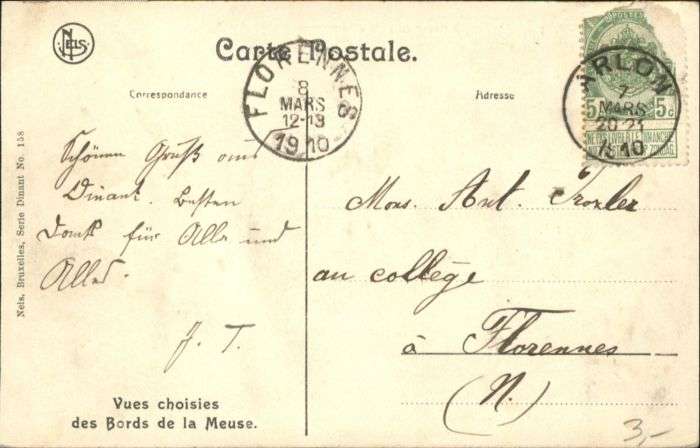 NELS
Carte Postale.
Correspondance
Adresse
FLORENNES
8
MARS
12-13
1910
ARLON
7
MARS
20-21
1910
5 5c
NE PAS LIVRER LE DIMANCHE
Schönen Gruß aus
Dinant. Besten
Dank für Alle und
Alles.
J. T.
Mons. Ant. Troxler
au collège
à Florennes
(N.)
Nels, Bruxelles, Serie Dinant No. 158
Vues choisies
des Bords de la Meuse.
3,-